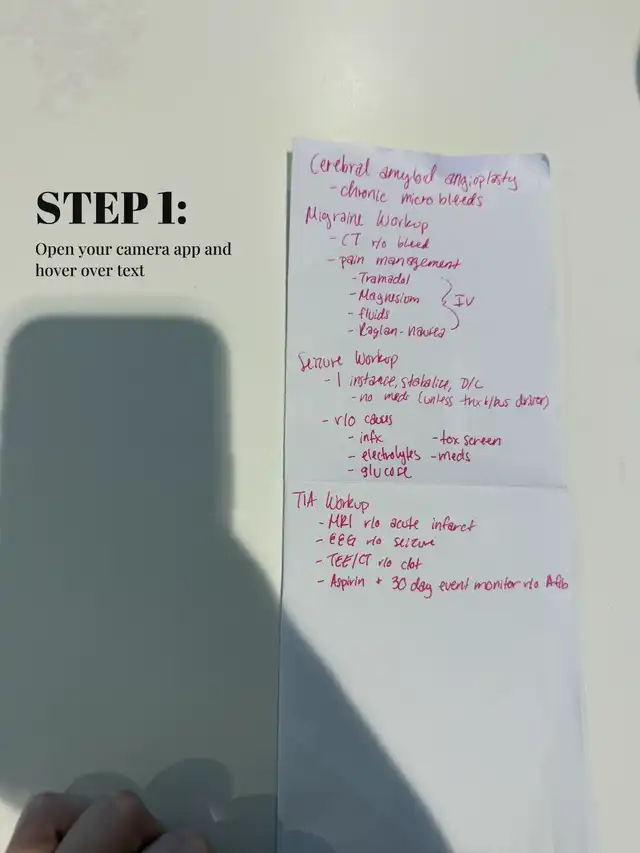 STEP 1:
Open your camera app and
hover over text
Cerebral amyloid angioplasty
- chronic microbleeds
Migraine Workup
- CT r/o bleed
- pain management
- Tramadol
- Magnesium
- fluids
- Raglan - nausea
IV
Seizure Workup
- 1 instance, stabalize, D/C
- no meds (unless truck/bus driver)
- r/o causes
- infx - tox screen
- electrolytes - meds
- glucose
TIA Workup
- MRI r/o acute infarct
- EEG r/o seizure
- TEE/CT r/o clot
- Aspirin + 30 day event monitor r/o Afib